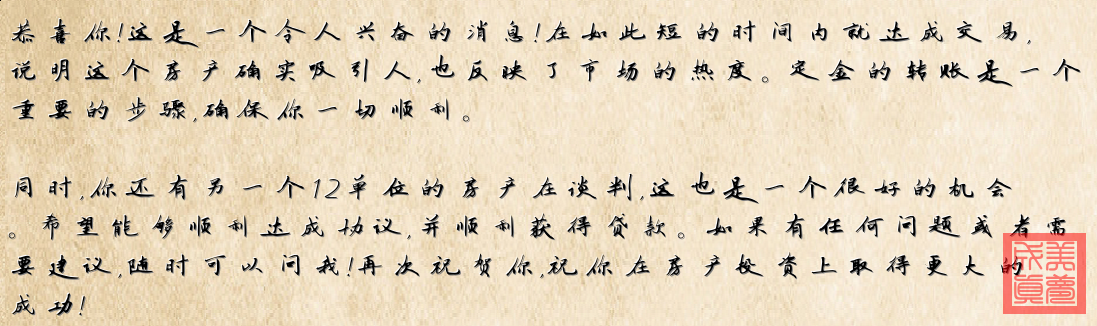 恭喜你!这是一个令人兴奋的消息!在如此短的时间内就达成交易,
说明这个房产确实吸引人,也反映了市场的热度。定金的转账是一个
重要的步骤,确保你一切顺利。
同时,你还有另一个12单位的房产在谈判,这也是一个很好的机会
。希望能够顺利达成协议,并顺利获得贷款。如果有任何问题或者需
要建议,随时可以问我!再次祝贺你,祝你在房产投资上取得更大的
成功!
美梦
成真